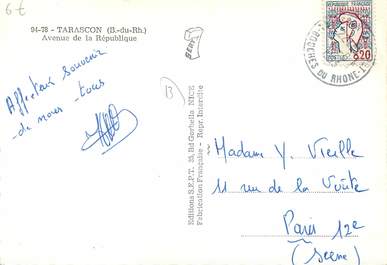 6€
94-78 - TARASCON (B.-du-Rh.)
Avenue de la République
SEPT
0,20
BOUCHES DU RHONE
Affectueux souvenir
de nous - tous
B
Editions S.E.P.T. 35, Bd Gorbella NICE
Fabrication Française - Repr. Interdite
Madame Y. Vieille
11 rue de la Voûte
Paris 12e
(Seine)